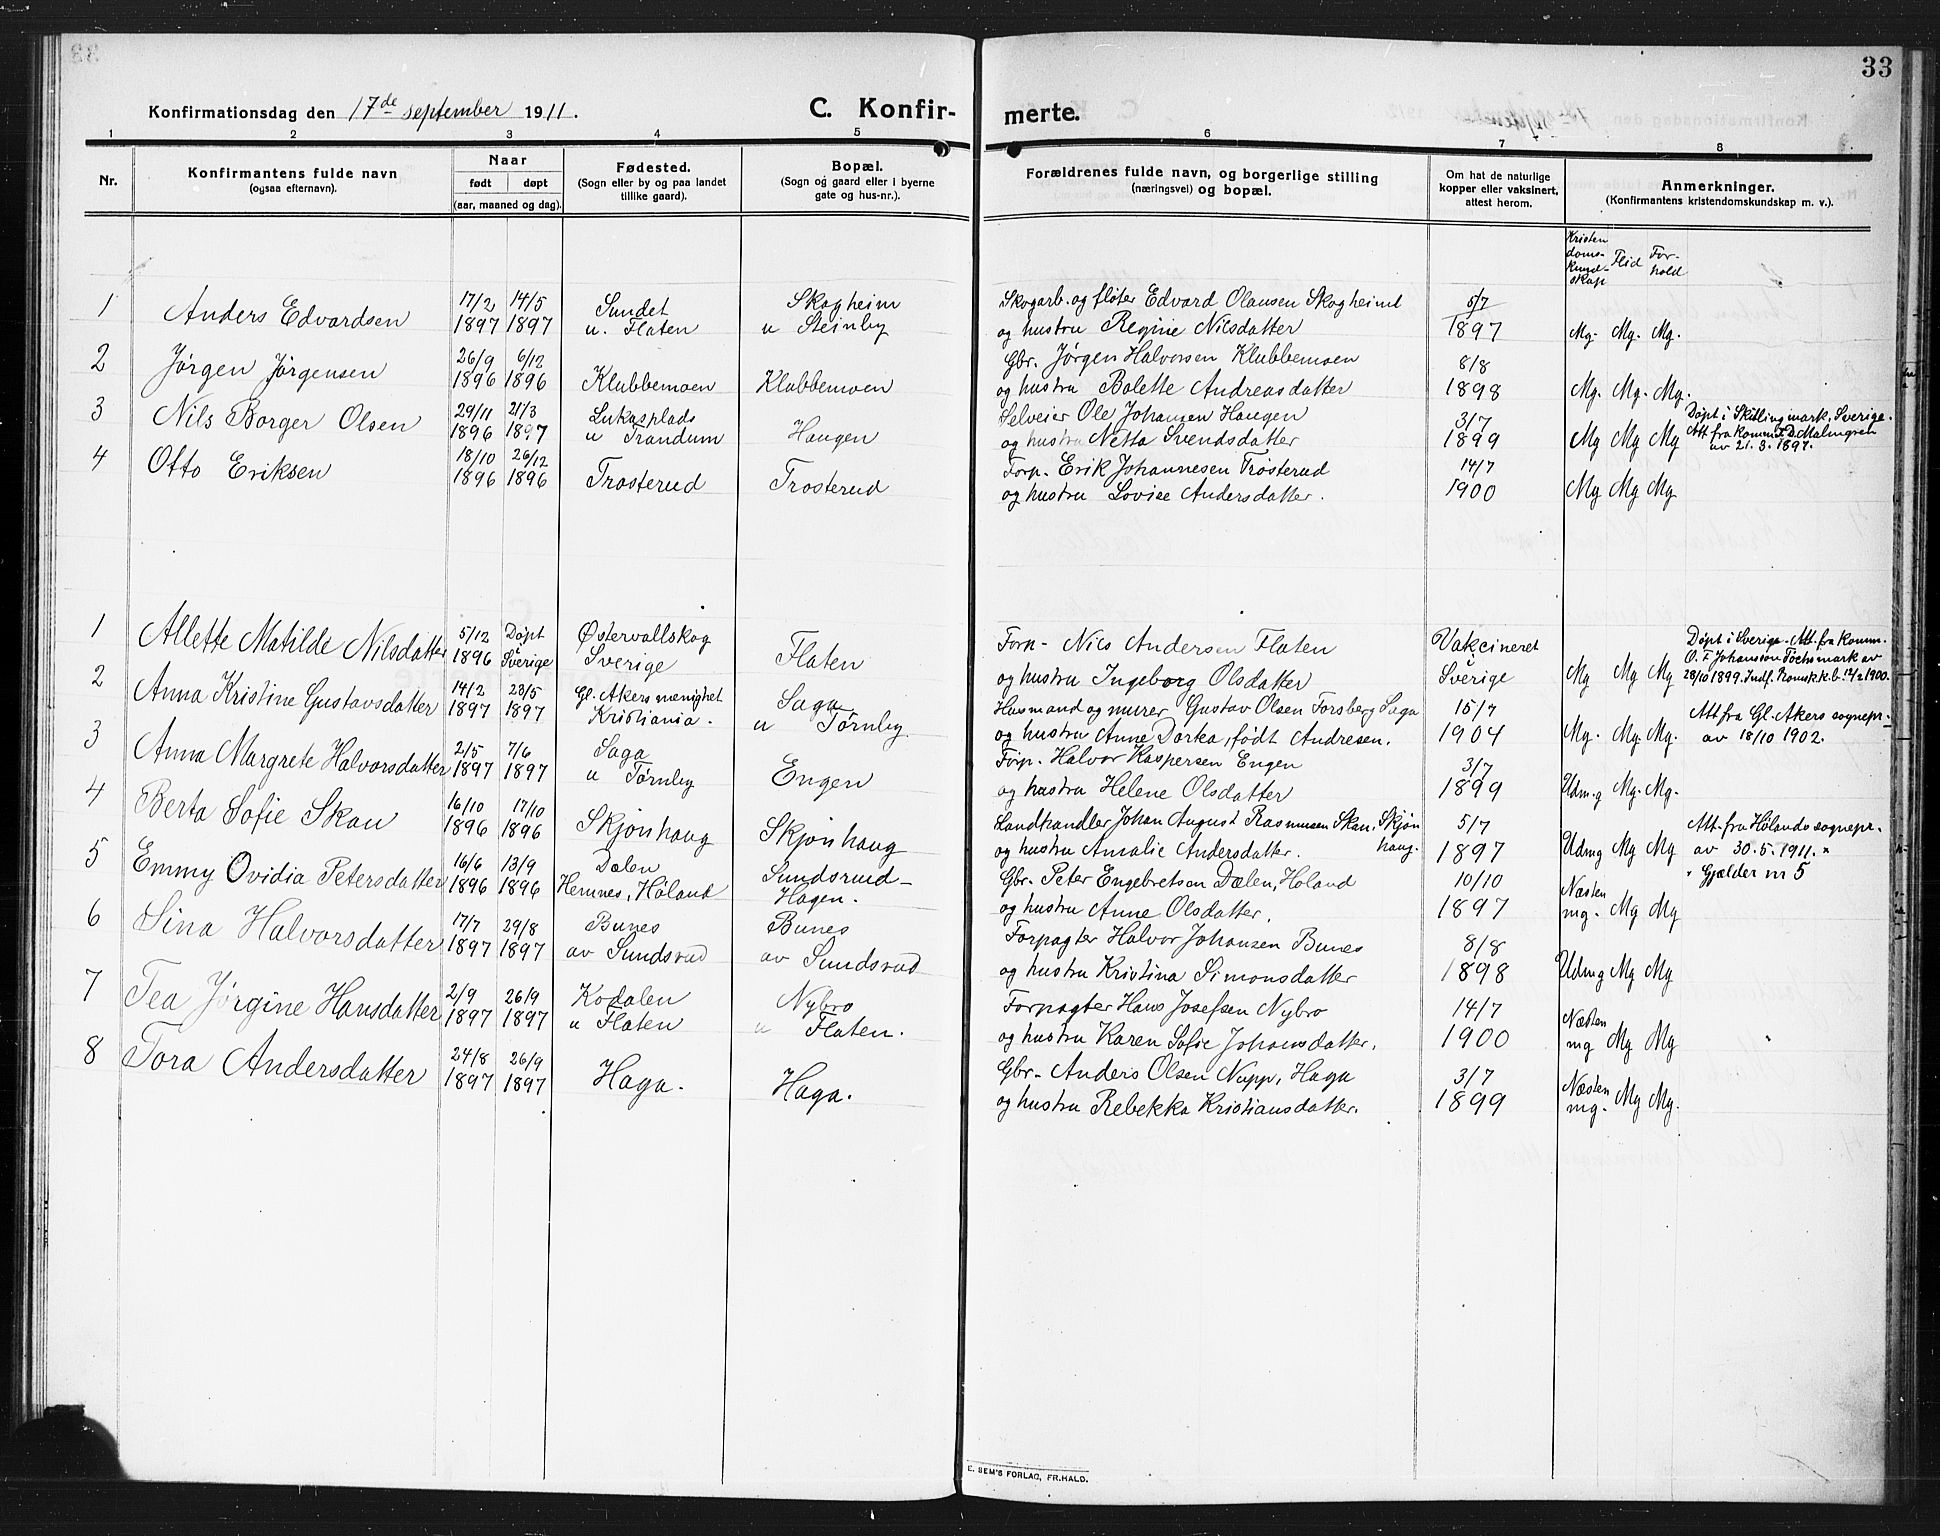 33
Konfirmationsdag den 17de september 1911.
C. Konfir-
merte.
1 2 3 4 5 6 7 8
Nr.
Konfirmantens fulde navn
(ogsaa efternavn).
Naar
født døpt
(aar, maaned og dag).
Fødested.
(Sogn eller by og paa landet
tillike gaard).
Bopæl.
(Sogn og gaard eller i byerne
gate og hus-nr.).
Forældrenes fulde navn, og borgerlige stilling
(næringsvei) og bopæl.
Om hat de naturlige
kopper eller vaksinert,
attest herom.
Anmerkninger.
(Konfirmantens kristendomskundskap m. v.).
Kristen
doms-
kund-
skap
Flid
For-
hold
1 Anders Edvardsen 17/2 1897 14/5 1897 Sundet u. Flaten Skogheim u Steinby
Skogarb. og fløter Edvard Olausen Skogheim
og hustru Regine Nilsdatter 5/7 1897 Mg. Mg. Mg.
2 Jørgen Jørgensen 26/9 1896 6/12 1896 Klubbemoen Klubbemoen
Gbr. Jørgen Halvorsen Klubbemoen
og hustru Bolette Andreasdatter 8/8 1898 Mg. Mg. Mg.
3 Nils Borger Olsen 29/11 1896 21/3 1897 Lukasplads u Trandum Haugen
Selveier Ole Johansen Haugen
og hustru Netta Svendsdatter 3/7 1899 Mg Mg Mg
Døpt i Skillingmark, Sverige.
Att fra komm. F. D. Malmgren
av 21.3.1897.
4 Otto Eriksen 18/10 1896 26/12 1896 Trosterud Trosterud
Forp. Erik Johannesen Trosterud
og hustru Lovise Andersdatter. 14/7 1900 Mg Mg Mg
1 Allette Matilde Nilsdatter 5/12 1896 Døpt i Sverige Østervallskog Sverige Flaten
Forp. Nils Andersen Flaten
og hustru Ingeborg Olsdatter Vakcineret i Sverige Mg Mg Mg
Døpt i Sverige. Att. fra komm.
O. F. Johansson Töcksmark av
28/10 1899. Indf. Romsk. k.b. 12/2 1900.
2 Anna Kristine Gustavsdatter 14/2 1897 23/5 1897 Gl. Akers menighet Kristiania. Saga u Tørnby
Husmand og murer Gustav Olsen Forsberg Saga
og hustru Anne Dorka, født Andresen. 15/7 1904 Mg. Mg. Mg.
Att fra Gl. Akers sognepr.
av 18/10 1902.
3 Anna Margrete Halvorsdatter 2/5 1897 7/6 1897 Saga u Tørnby Engen
Forp. Halvor Kaspersen Engen
og hustru Helene Olsdatter 3/7 1899 Udm.g Mg. Mg.
4 Berta Sofie Skau 16/10 1896 17/10 1896 Skjønhaug Skjønhaug
Landhandler Johan August Rasmussen Skau, Skjøn
haug.
og hustru Amalie Andersdatter. 5/7 1897 Udmg Mg Mg
Att. fra Hølands sognepr.
av 30.5.1911. "
" Gjælder nr 5
5 Emmy Ovidia Petersdatter 16/6 1896 13/9 1896 Dælen Hemnes, Høland Sundsruid-Hagen.
Gbr. Peter Engebretsen Dælen, Høland
og hustru Anne Olsdatter. 10/10 1897 Næsten mg. Mg Mg
6 Sina Halvorsdatter 17/7 1897 29/8 1897 Bunes av Sundsrud Bunes av Sundsrud
Forpagter Halvor Johansen Bunes
og hustru Kristina Simonsdatter 8/8 1898 Udmg Mg Mg
7 Tea Jørgine Hansdatter 2/9 1897 26/9 1897 Kodalen u Flaten Nybro u Flaten.
Forpagter Hans Josefsen Nybro
og hustru Karen Sofie Johansdatter. 14/7 1900 Næsten mg Mg Mg
8 Tora Andersdatter 24/8 1897 26/9 1897 Haga. Haga.
Gbr. Anders Olsen Nupp, Haga
og hustru Rebekka Kristiansdatter. 3/7 1899 Næsten mg. Mg Mg.
E. SEM'S FORLAG, FR.HALD.